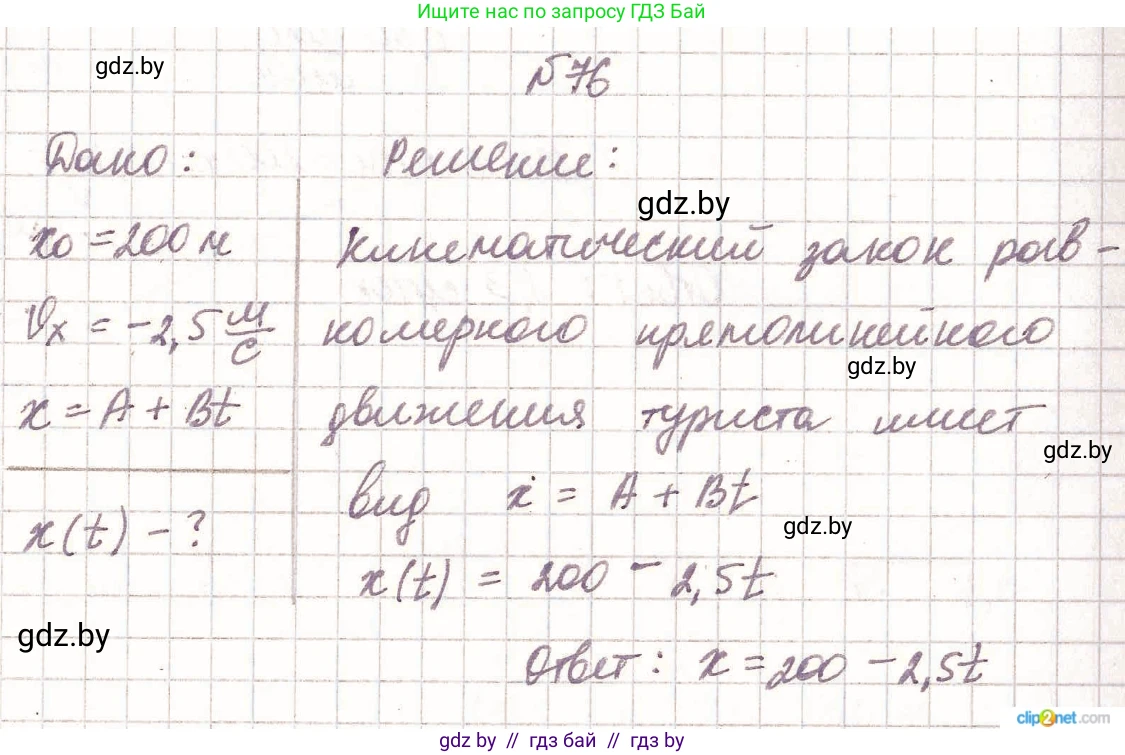 Ищите нас по запросу ГДЗ Бай
gdz.by
№ 76
Дано: Решение:
gdz.by
x₀ = 200 м Кинематический закон рав-
Vₓ = -2,5 м/с номерного прямолинейного
gdz.by
x = A + Bt движения туриста имеет
gdz.by
вид x = A + Bt
x(t) - ?
gdz.by
x(t) = 200 - 2,5t
gdz.by
Ответ: x = 200 - 2,5t
clip2net.com
gdz by // гдз бай // гдз by